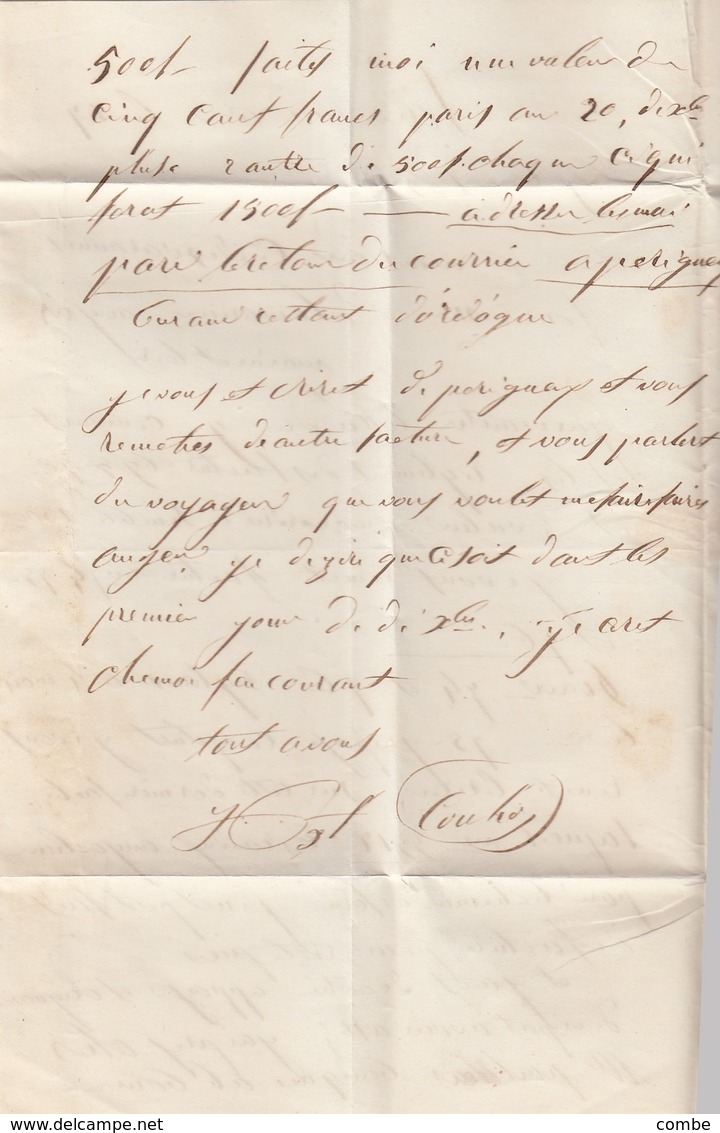 500f- faites moi une valeur de
cinq cent francs paris au 20, de xbre
plus 2 autre de 500f. chaque ce qui
forat 1500f — adresse les moi
pare le retour du courrier a perigueux
restant dordogne
je vous et criret de perigueux et vous
remetres de autre facture, et vous parlert
du voyageur que vous voulet me faire faires
je dezire que ce soit dant les
premier jour de di xbre, je aret
chemoi fin courant
tout avous
delcampe.net
combe